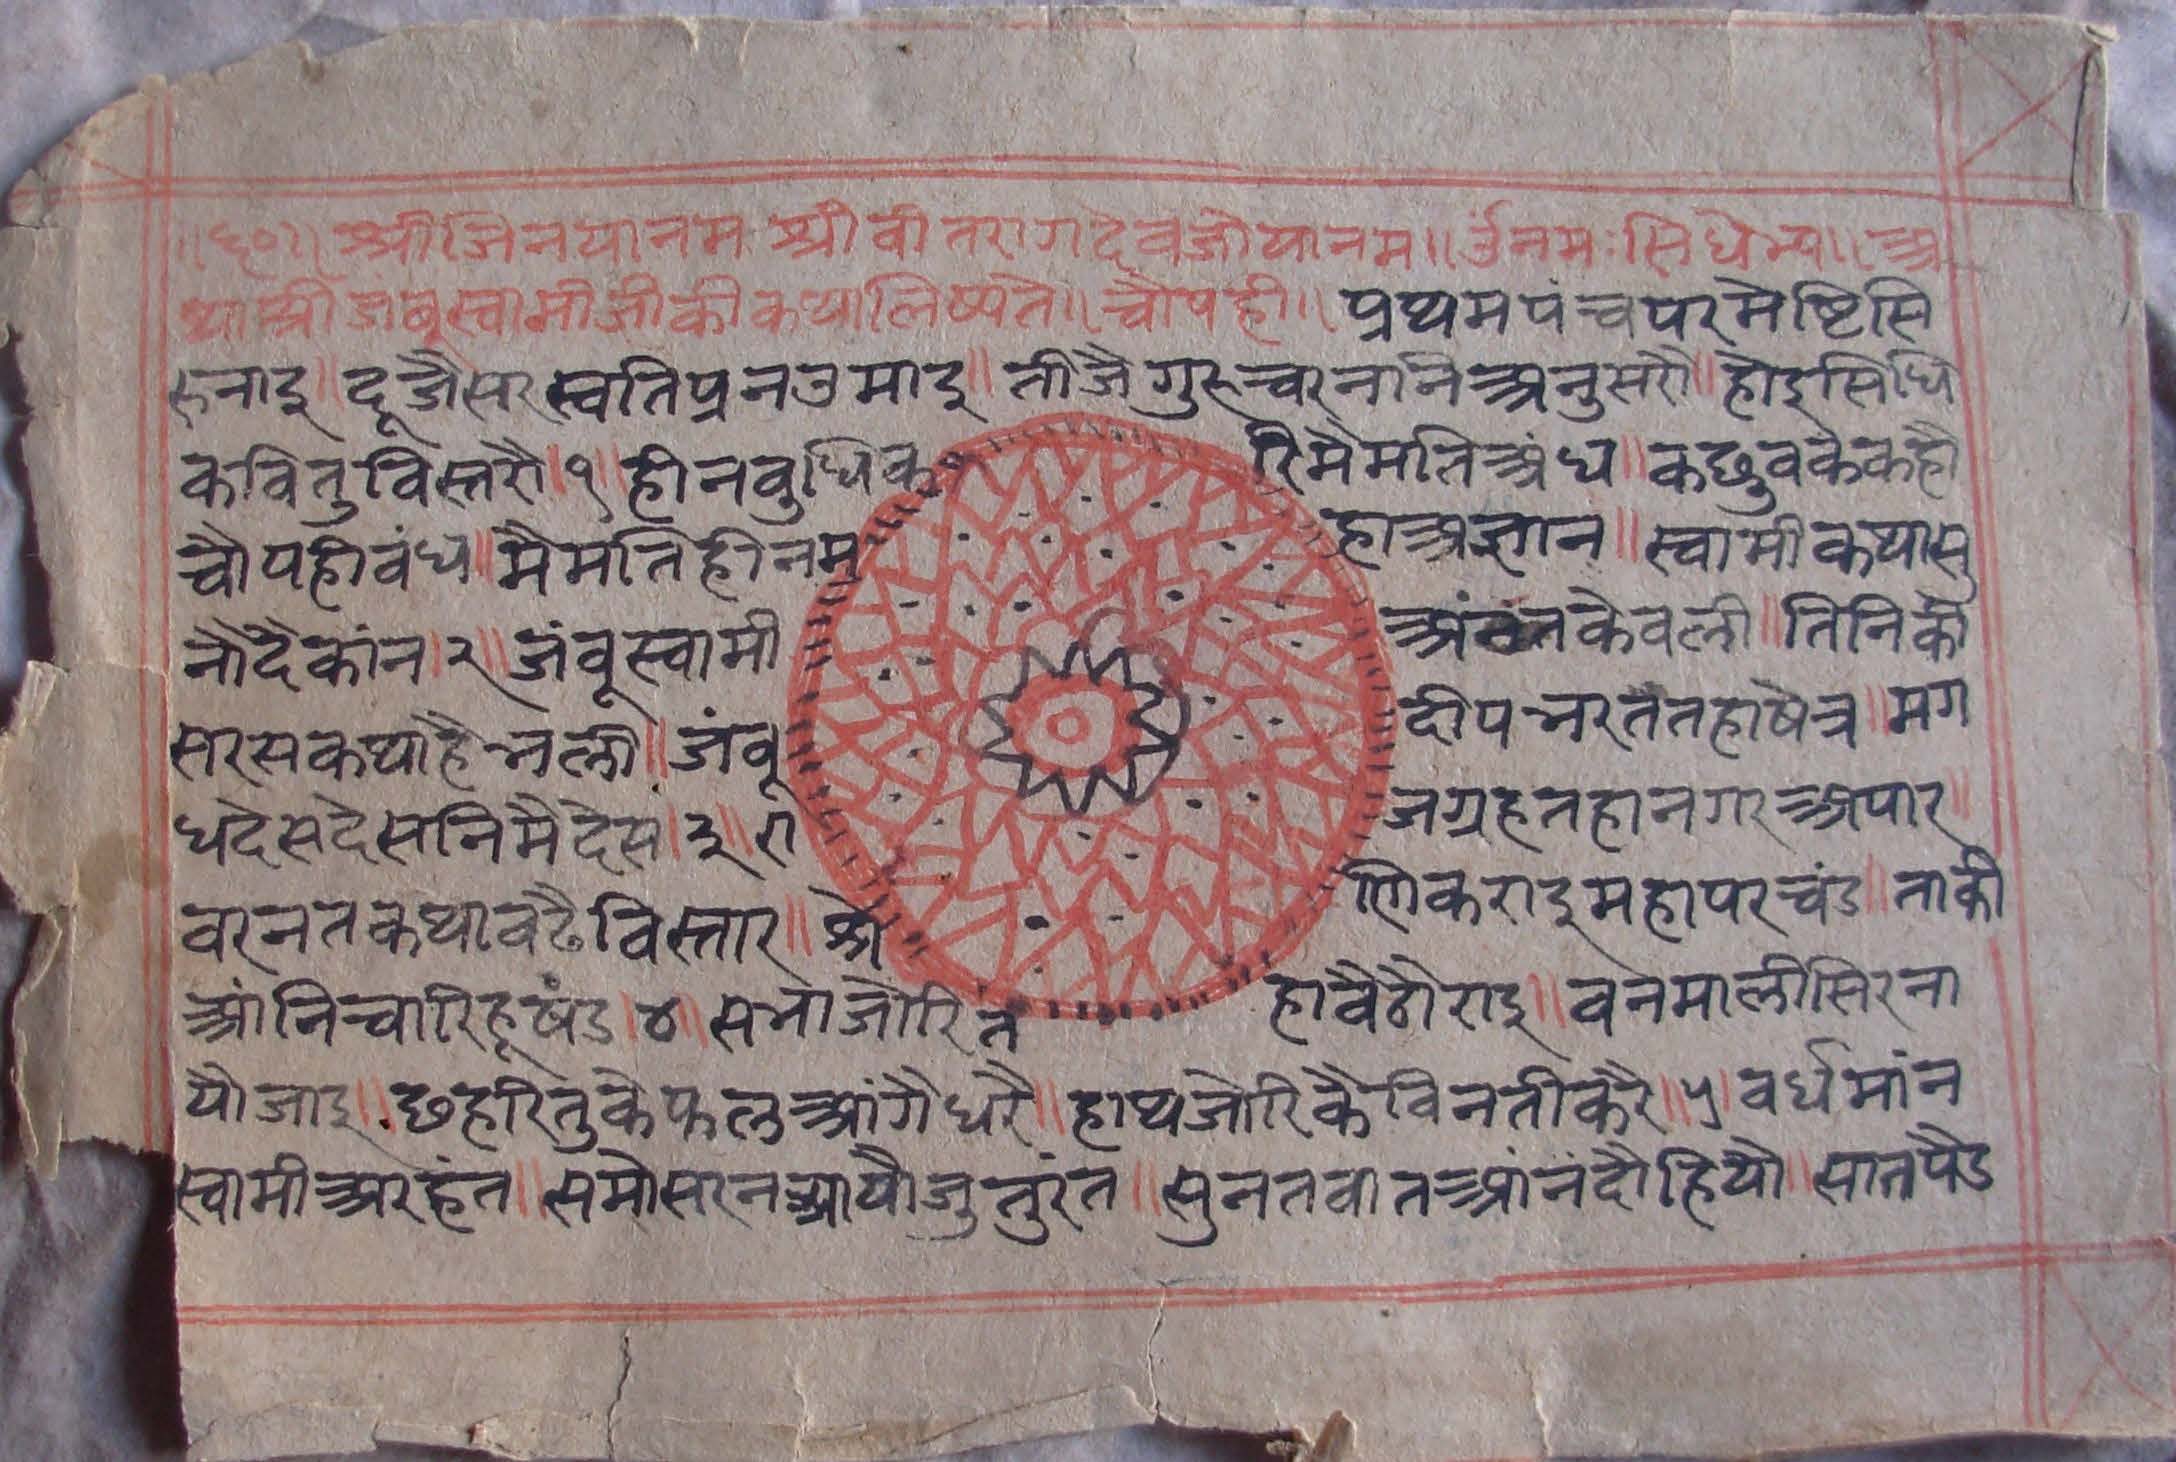 ॥६०॥ श्रीजिनयानम श्रीवीतरागदेवजीयानम॥ र्उनमः सिधेभ्य॥ अ
थाश्रीजंबूस्वामीजीकीकथालिष्यते॥ चौपही॥ प्रथमपंचपरमेष्टिसि
रुनाइ॥ दूजैसरस्वतिप्रनउमाइ॥ तीजैगुरुचरनानिअनुसरौ॥ होइसिधि
कवितुविस्तरौ॥१॥ हीनबुधिक रिमैमतिअंध॥ कछुवकेकहौ
चौपहीवंध॥ मैमतिहीनम हाअज्ञान॥ स्वामीकथासु
नौदैकांन।२॥ जंवूस्वामी अंततकेवली॥ तिनिकी
सरसकथाहैभली॥ जंवू दीपभरतैतहाषेत्र॥ मग
धदेसदेसनिमैदेस।३॥ रा जग्रहतहानगरअपार॥
वरनतकथावढैविस्तार॥ श्रे णिकराइमहापरचंड॥ ताकी
आंनिचारिहूषंड।४॥ सभाजोरित हावैठौराइ॥ वनमालीसिरना
योजाइ॥ छहरितुकेफलआंगैधरै॥ हाथजोरिकैविनतीकरै॥५॥ वर्धमांन
स्वामीअरहंत॥ समोसरनआयौजुतुरंत॥ सुनतवातआंनंदौहियौ॥ सातपैड